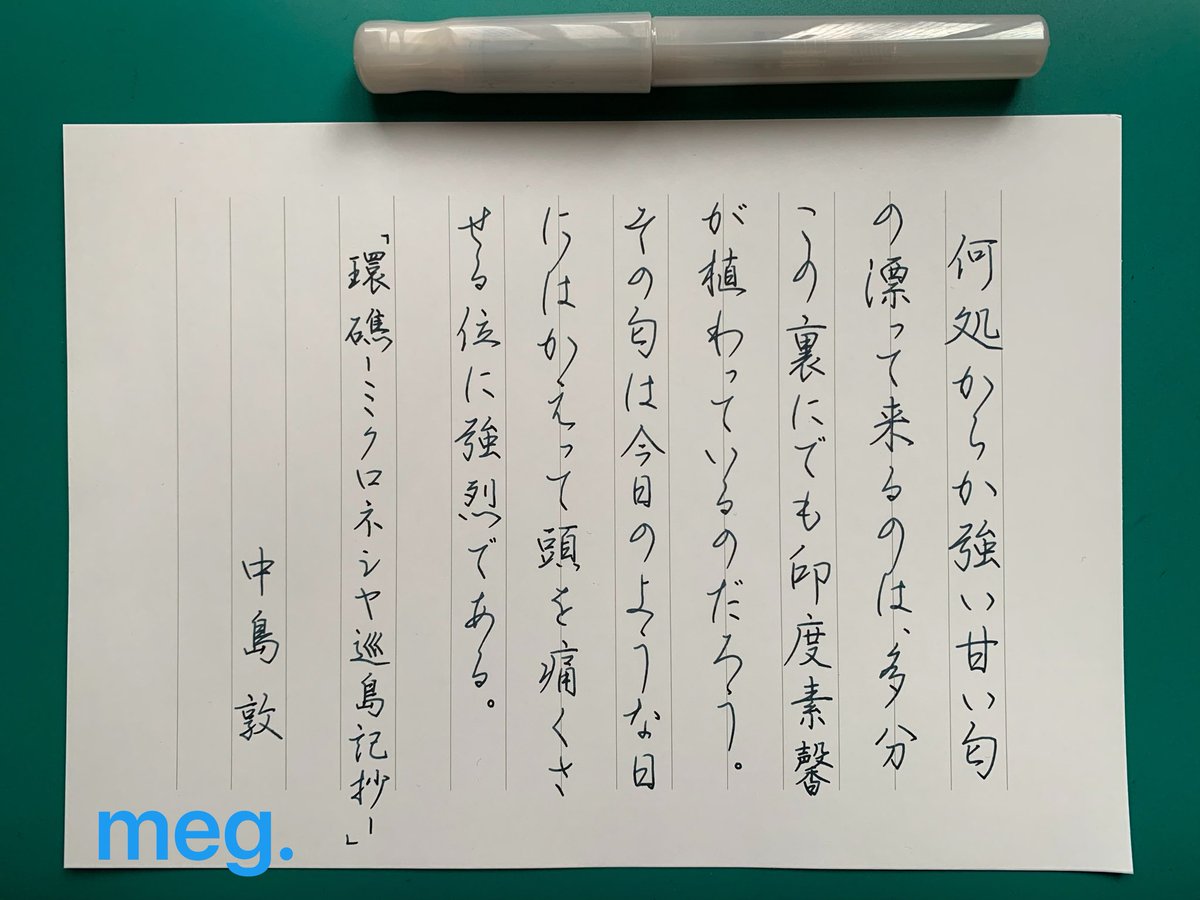 何処からか強い甘い匂
の漂って来るのは、多分
この裏にでも印度素馨
が植わっているのだろう。
その匂は今日のような日
にはかえって頭を痛くさ
せる位に強烈である。
「環礁ーミクロネシヤ巡島記抄ー」
中島敦
meg.